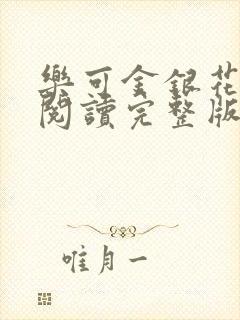 樂可金銀花
閱讀完整版
唯月一